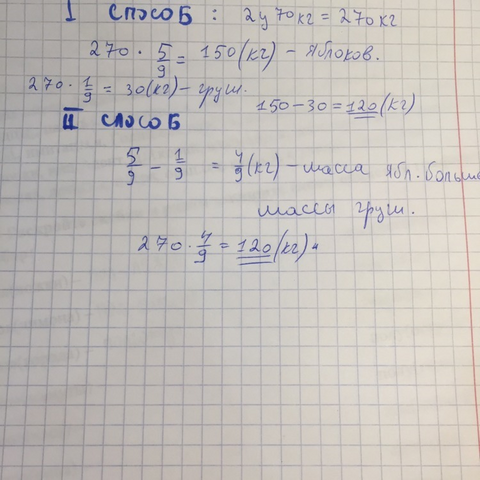 I СПОСОБ : 2ц 70кг = 270кг
270 · 5/9 = 150(кг) – яблоков.
270 · 1/9 = 30(кг) – груш.
150 – 30 = 120(кг)
II СПОСОБ
5/9 – 1/9 = 4/9(кг) – масса ябл. больше
массы груш.
270 · 4/9 = 120(кг)